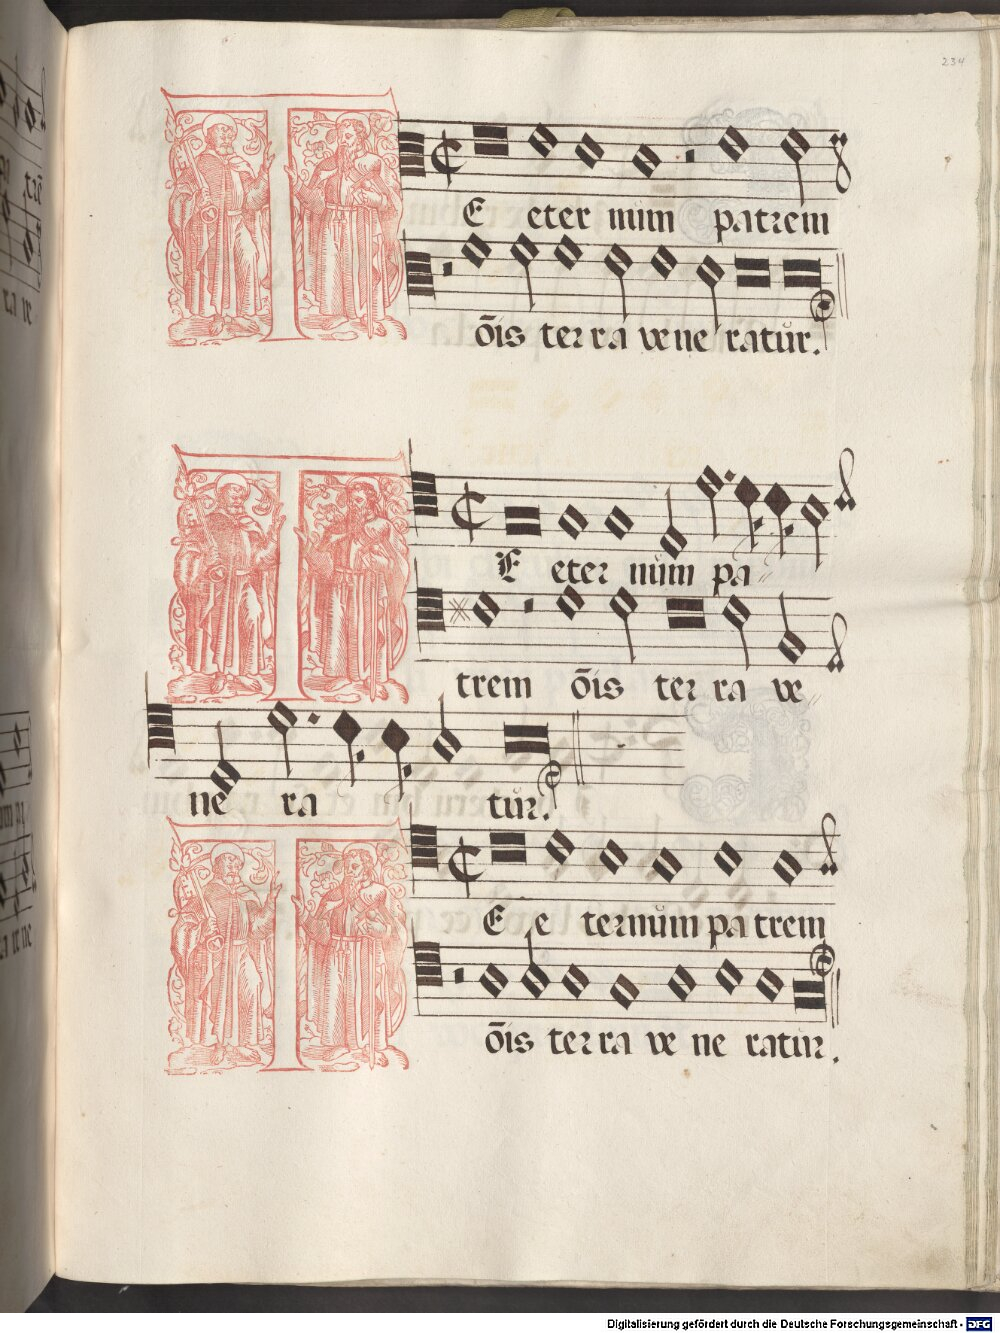 234
TE eter num patrem
ōis ter ra vene ratur.
TE eter num pa
trem ōis ter ra ve
ne ra tur.
TE e ternum pa trem
ōis ter ra ve ne ratur.
Digitalisierung gefördert durch die Deutsche Forschungsgemeinschaft - DFG